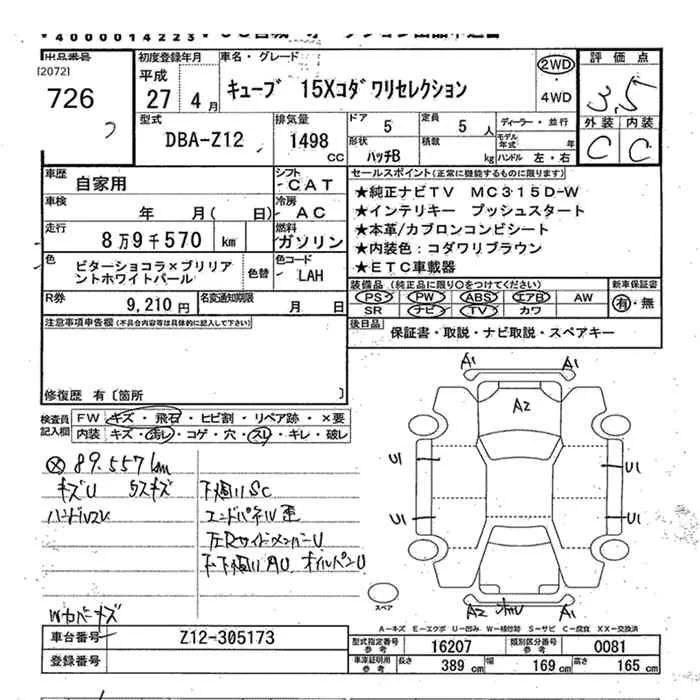 V4000014223
出品番号 初度登録年月 車名・グレード 評価点
[2072] 平成 2WD
726 27年4月 キューブ 15Xコダワリセレクション ・4WD 3.5
型式 排気量 ドア 定員 ディーラー・並行 外装 内装
DBA-Z12 1498 CC 5 5人 モデル年式 年 C C
形状 積載
ハッチB kg ハンドル 左・右
車歴 シフト セールスポイント(正常に機能するものに限ります)
自家用 CAT ★純正ナビTV MC315D-W
車検 冷房 ★インテリキー プッシュスタート
年 月( 日) AC ★本革/カプロンコンビシート
走行 燃料 ★内装色:コダワリブラウン
8万9千570km ガソリン ★ETC車載器
色 色替 色コード
ビターショコラ×ブリリアントホワイトパール LAH
装備品(純正品に限り○をつけてください) 新車保証書
PS PW ABS エアB AW 有・無
SR ナビ TV カワ
R券 9,210円 名変通知期限 月 日
後日品 保証書・取説・ナビ取説・スペアキー
注意事項申告欄(不具合内容等は具体的に記入して下さい)
修復歴 有〔箇所 〕
検査員記入欄 FW キズ・飛石・ヒビ割・リペア跡・×要
内装 キズ・汚レ・コゲ・穴・スレ・キレ・破レ
89.557km
キズU ラスキズ 下廻りSC
ハンドルスレ エンドパネル歪
左RサイドメンバーU
下廻りAU オイルパンU
Wカバーキズ
A1 A1
A2
U1 U1
U1 U1
A2 A1
スペア
A-キズ E-エクボ U-凹み W-補修跡 S-サビ C-腐食 XX-交換済
車台番号 Z12-305173
登録番号
型式指定番号 参考 16207 類別区分番号 参考 0081
車庫証明用 参考 長さ 389cm 幅 169cm 高さ 165cm